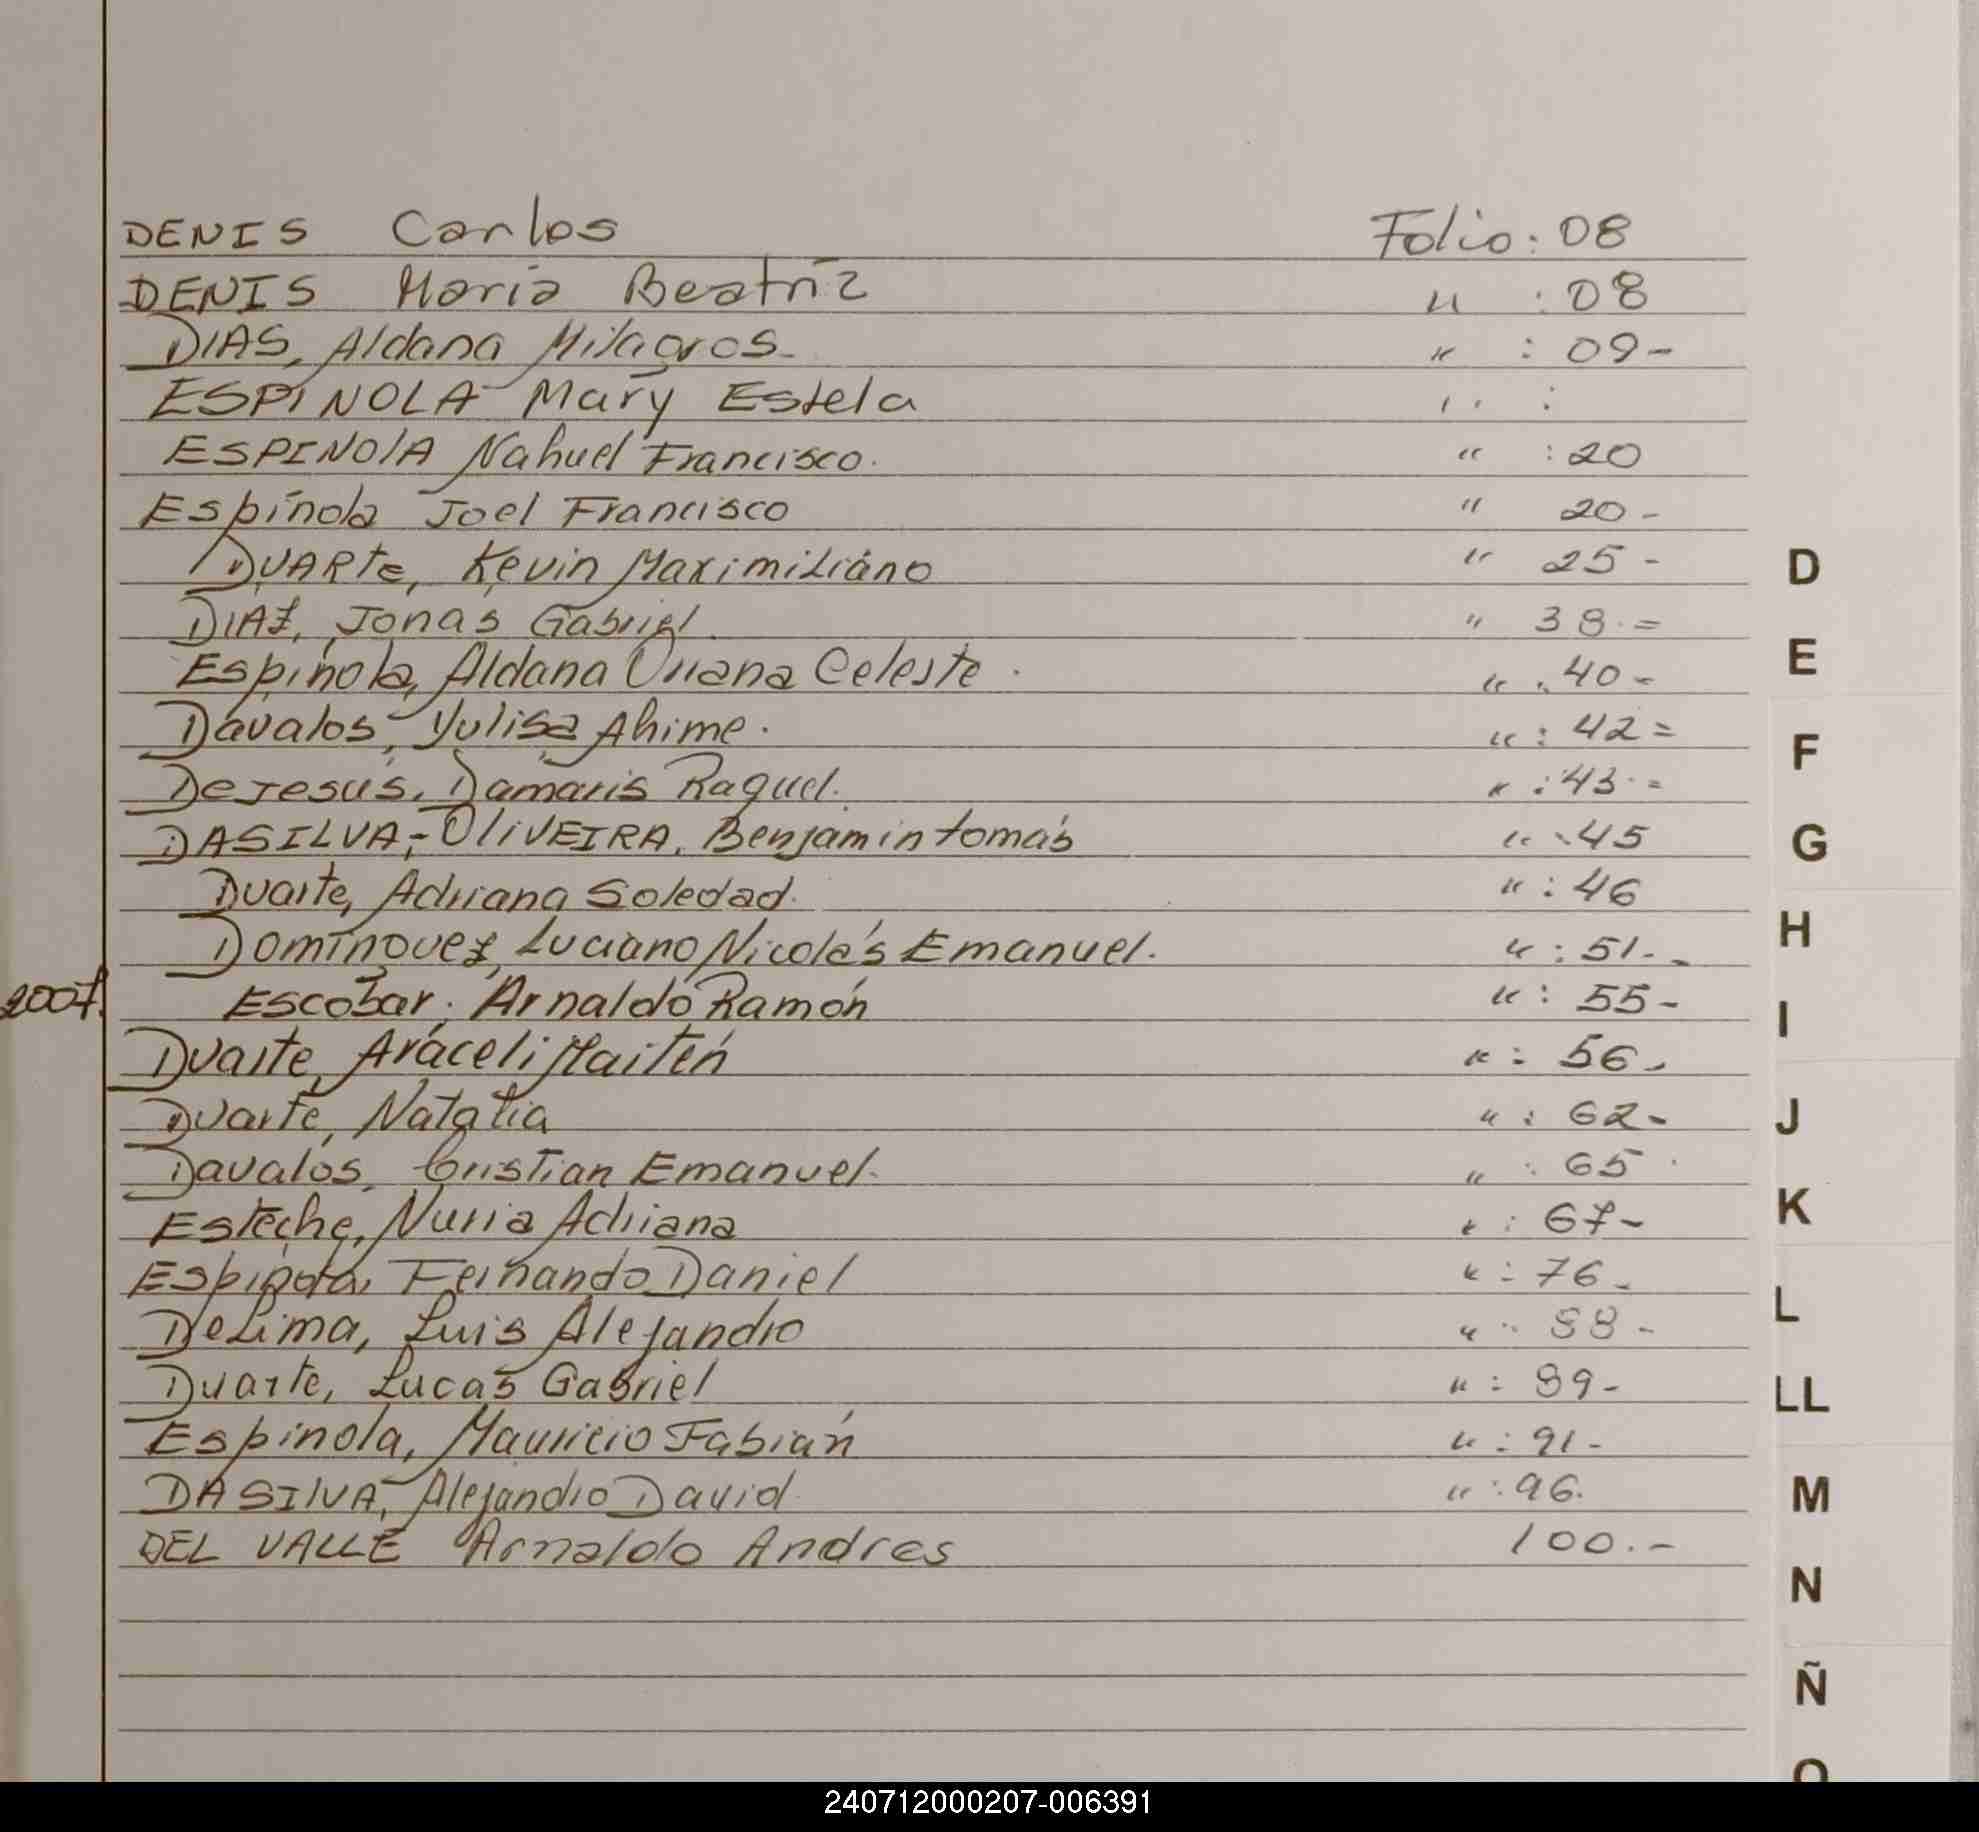 DENIS Carlos Folio: 08
DENIS María Beatríz " : 08
DIAS, Aldana Milagros. " : 09-
ESPINOLA Mary Estela " :
ESPINOlA Nahuel Francisco. " : 20
Espínola Joel Francisco " 20-
DUARte, Kevin Maximiliano " 25-
DIAZ, Jonas Gabriel. " 38.=
Espínola, Aldana Oriana Celeste. " : 40-
Davalos, Yulisa Ahime. " : 42=
DeJesús, Damaris Raquel. " : 43.=
DASILVA-OliVEIRA, Benjamin tomás " : 45
Duarte, Adriana Soledad. " : 46
Dominguez, Luciano Nicolás Emanuel. " : 51-
2007. Escobar, Arnaldo Ramón " : 55-
Duarte, Araceli Maitén " : 56-
Duarte, Natalia " : 62-
Davalos, Cristian Emanuel. " : 65
Esteche, Nuria Adriana " : 67-
Espinola, Fernando Daniel " : 76-
DeLima, Luis Alejandro " : 88-
Duarte, Lucas Gabriel " : 89-
Espinola, Mauricio Fabián " : 91-
DASIlVA, Alejandro David. " : 96.
DEL VALLE Arnaldo Andres 100.-
D
E
F
G
H
I
J
K
L
LL
M
N
Ñ
O
240712000207-006391